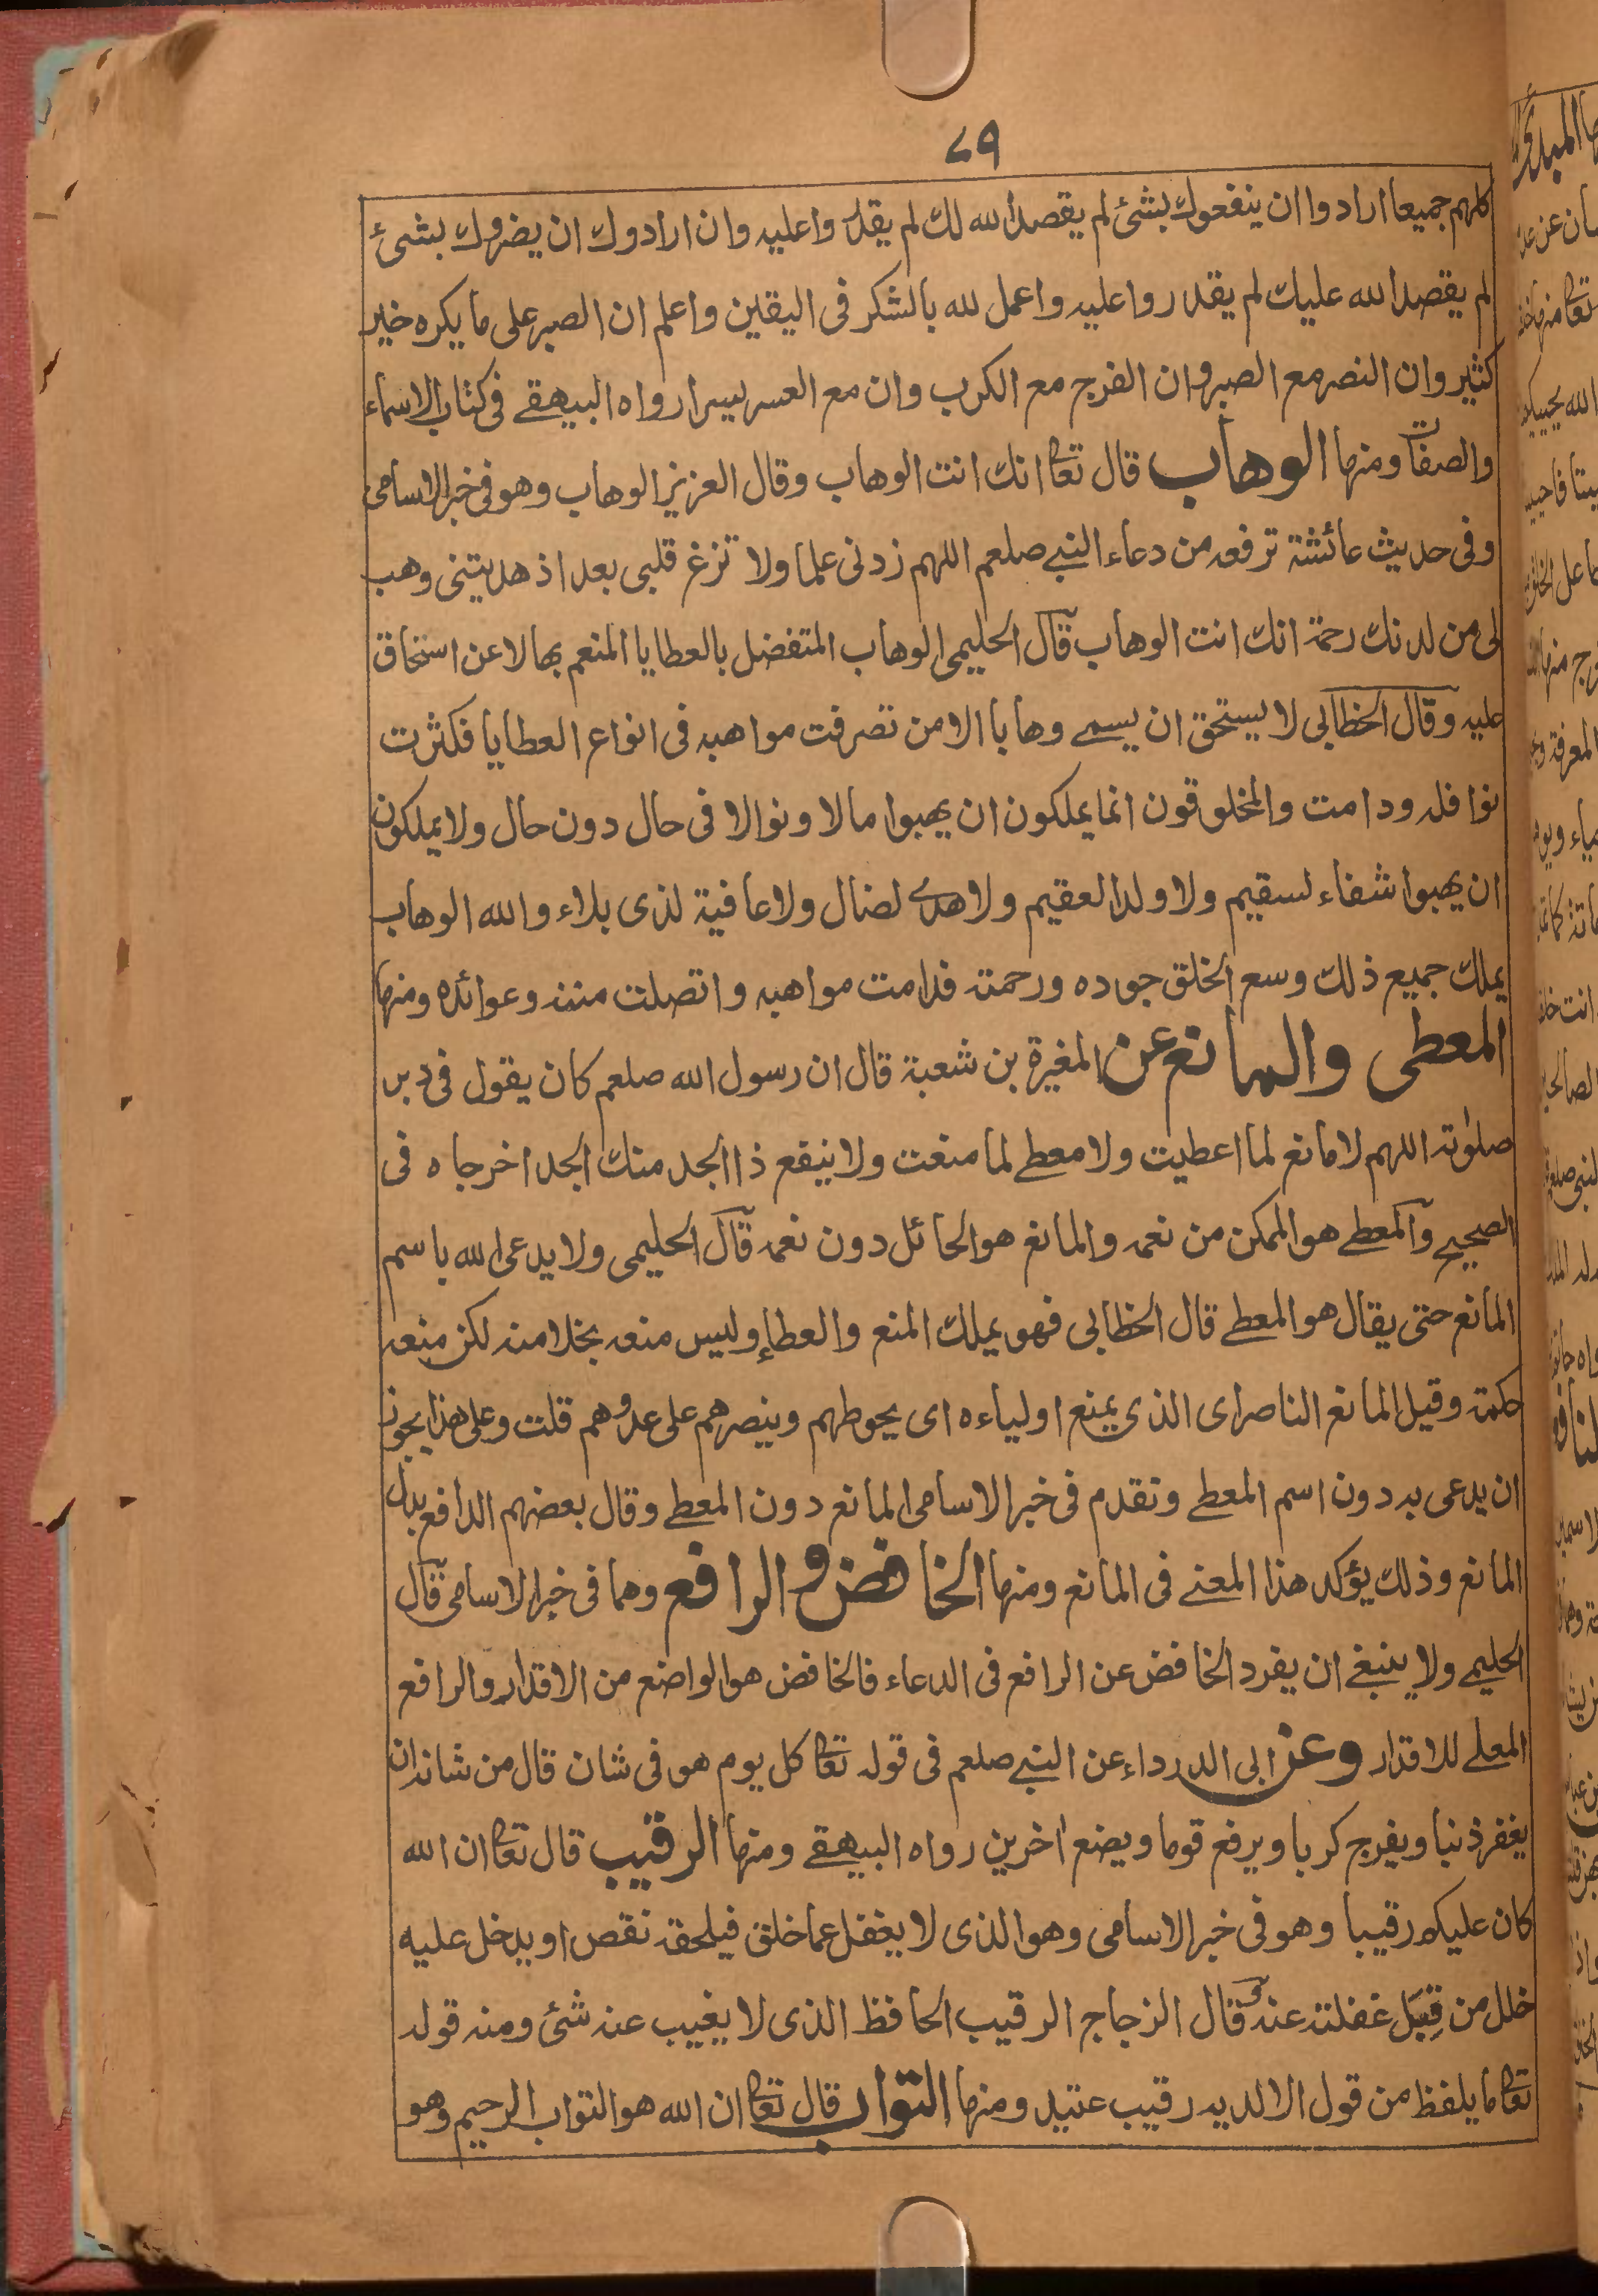 ٧٩
كلهم جميعا ارادوا ان ينفعوك بشئ لم يقصد الله لك لم يقدروا عليه وان ارادوك ان يضروك بشئ
لم يقصد الله عليك لم يقدروا عليه واعمل لله بالشكر فى اليقين واعلم ان الصبر على ما يكره خير
كثير وان النصر مع الصبر وان الفرج مع الكرب وان مع العسر يسرا رواه البيهقے فى كتاب الاسماء
والصفات ومنها الوهاب قال تعا انك انت الوهاب وقال العزيز الوهاب وهو فى خبر الاسامى
وفى حديث عائشة ترفعه من دعاء النبے صلعم اللهم زدنى علما ولا تزغ قلبى بعد اذ هديتنى وهب
لى من لدنك رحمة انك انت الوهاب قال الحليمى الوهاب المتفضل بالعطايا المنعم بها لا عن استحقاق
عليه وقال الخطابى لا يستحق ان يسمے وهابا الا من تصرفت مواهبه فى انواع العطايا فكثرت
نوافله ودامت والمخلوقون انما يملكون ان يهبوا مالا ونوالا فى حال دون حال ولا يملكون
ان يهبوا شفاء لسقيم ولا ولدا لعقيم ولا هدے لضال ولا عافية لذى بلاء والله الوهاب
يملك جميع ذلك وسع الخلق جوده ورحمته فدامت مواهبه واتصلت مننه وعوائده ومنها
المعطى والمانع عن المغيرة بن شعبة قال ان رسول الله صلعم كان يقول فى دبر
صلوته اللهم لا مانع لما اعطيت ولا معطے لما منعت ولا ينفع ذا الجد منك الجد اخرجاه فى
الصحيح والمعطے هو الممكن من نعمه والمانع هو الحائل دون نعمه قال الحليمى ولا يدعى الله باسم
المانع حتى يقال هو المعطے قال الخطابى فهو يملك المنع والعطاء وليس منعه بخلا منه لكن منعه
حكمة وقيل المانع الناصر اى الذى يمنع اولياءه اى يحوطهم وينصرهم على عدوهم قلت وعلى هذا يجوز
ان يدعى به دون اسم المعطے وتقدم فى خبر الاسامى المانع دون المعطے وقال بعضهم الدافع بدل
المانع وذلك يؤكد هذا المعنے فى المانع ومنها الخافض والرافع وهما فى خبر الاسامى قال
الحليمے ولا ينبغے ان يفرد الخافض عن الرافع فى الدعاء فالخافض هو الواضع من الاقدار والرافع
المعلے للاقدار وعن ابى الدرداء عن النبے صلعم فى قوله تعا كل يوم هو فى شان قال من شانه ان
يغفر ذنبا ويفرج كربا ويرفع قوما ويضع اخرين رواه البيهقے ومنها الرقيب قال تعا ان الله
كان عليكم رقيبا وهو فى خبر الاسامى وهو الذى لا يغفل عما خلق فيلحقه نقص او يدخل عليه
خلل من قِبَل غفلته عنه قال الزجاج الرقيب الحافظ الذى لا يغيب عنه شئ ومنه قوله
تعا ما يلفظ من قول الا لديه رقيب عتيد ومنها التواب قال تعا ان الله هو التواب الرحيم وهو